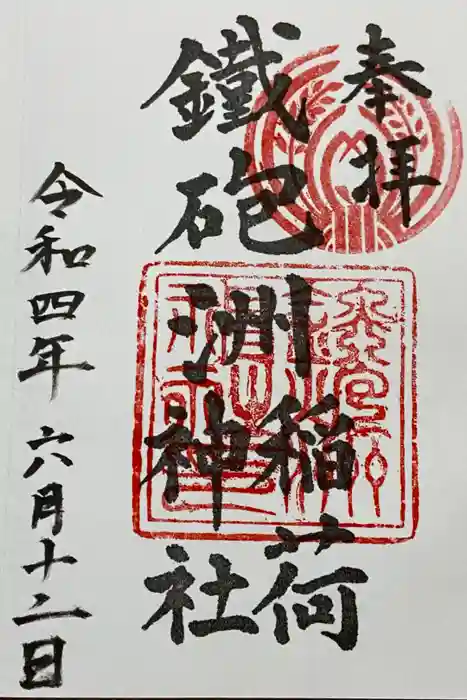 奉拝
鐵砲洲稲荷
神社
令和四年六月十二日